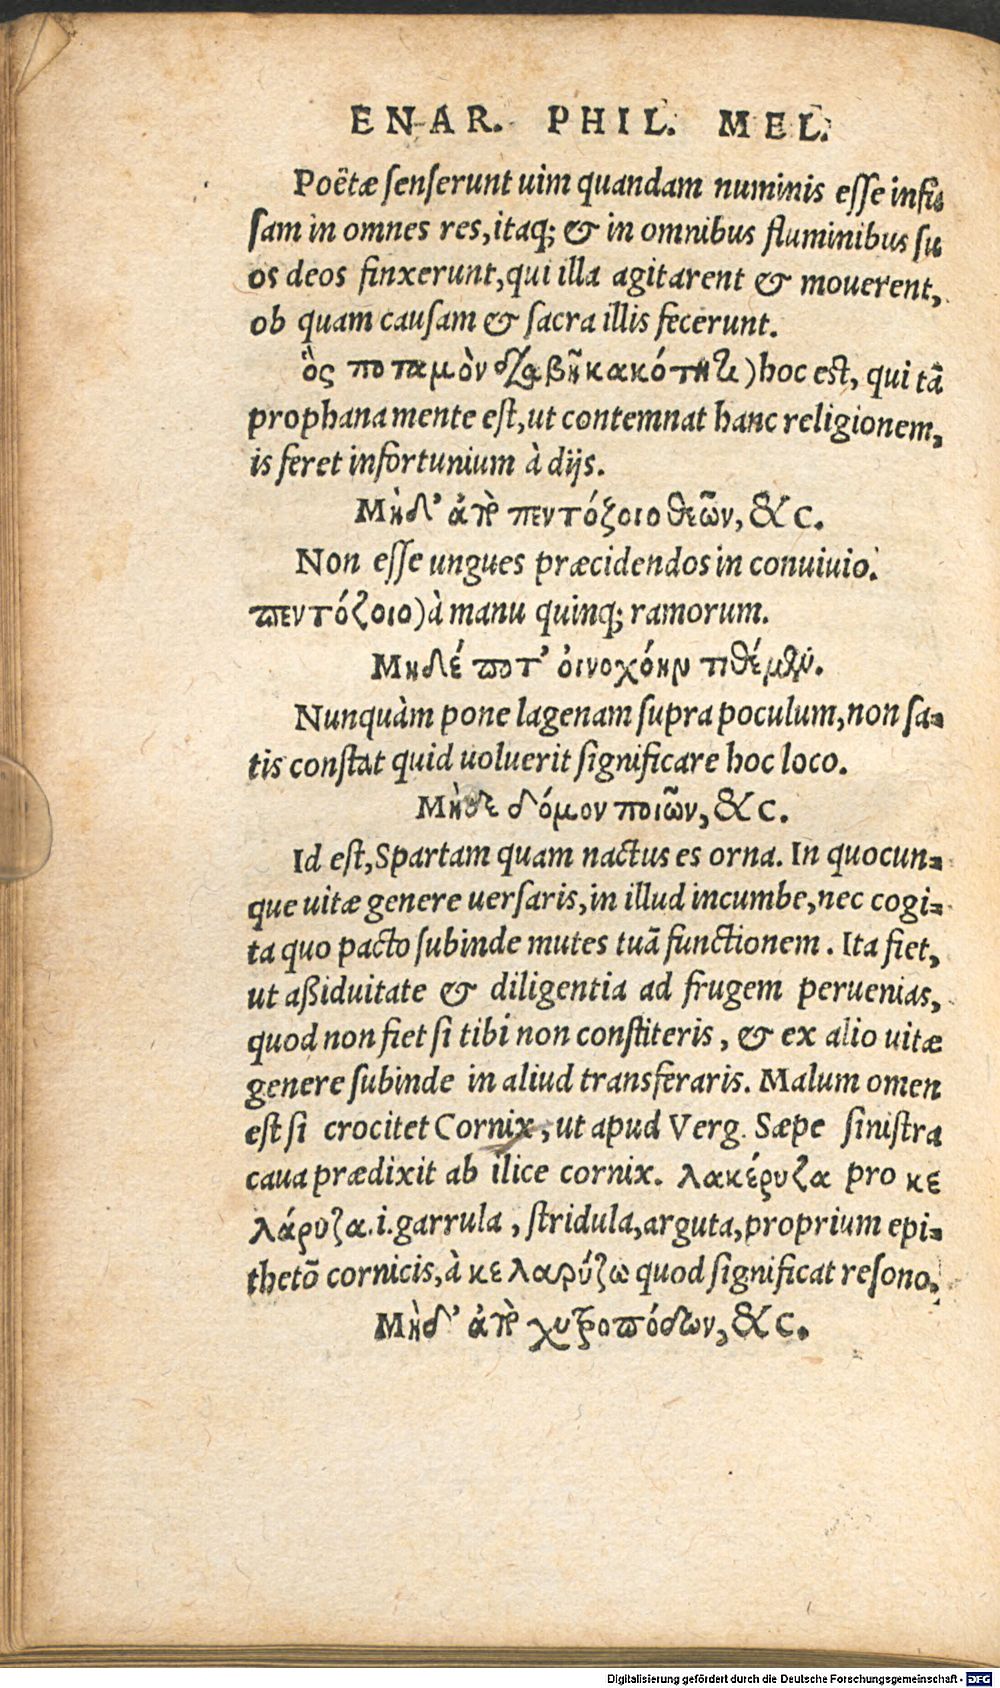 ENAR. PHIL. MEL.
Poëtæ senserunt uim quandam numinis esse infu
sam in omnes res, itaq; & in omnibus fluminibus su
os deos finxerunt, qui illa agitarent & mouerent,
ob quam causam & sacra illis fecerunt.
ὃς ποταμὸν διαβῇ κακότητι) hoc est, qui tā
prophana mente est, ut contemnat hanc religionem,
is feret infortunium à dijs.
Μηδ' ἀπὸ πεντόζοιο θεῶν, &c.
Non esse ungues præcidendos in conuiuio.
πεντόζοιο) à manu quinq; ramorum.
Μηδέ ποτ' οἰνοχόην τιθέμεν.
Nunquàm pone lagenam supra poculum, non sa-
tis constat quid uoluerit significare hoc loco.
Μηδὲ δόμον ποιῶν, &c.
Id est, Spartam quam nactus es orna. In quocun-
que uitæ genere uersaris, in illud incumbe, nec cogi-
ta quo pacto subinde mutes tuā functionem. Ita fiet,
ut aßiduitate & diligentia ad frugem peruenias,
quod non fiet si tibi non constiteris, & ex alio uitæ
genere subinde in aliud transferaris. Malum omen
est si crocitet Cornix, ut apud Verg. Sæpe sinistra
caua prædixit ab ilice cornix. λακέρυζα pro κε
λάρυζα.i.garrula, stridula, arguta, proprium epi-
thetō cornicis, à κελαρύζω quod significat resono.
Μηδ' ἀπὸ χυτροπόδων, &c.
Digitalisierung gefördert durch die Deutsche Forschungsgemeinschaft - DFG